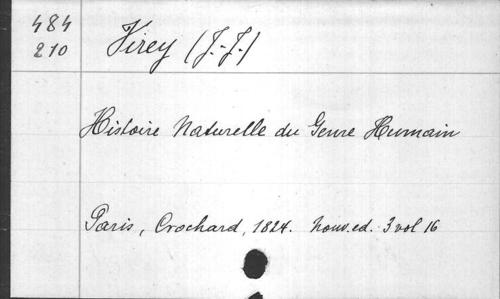 484
210
Virey (J.-J.)
Histoire Naturelle du Genre Humain
Paris, Crochard, 1824. Nouv. ed. 3 vol 16